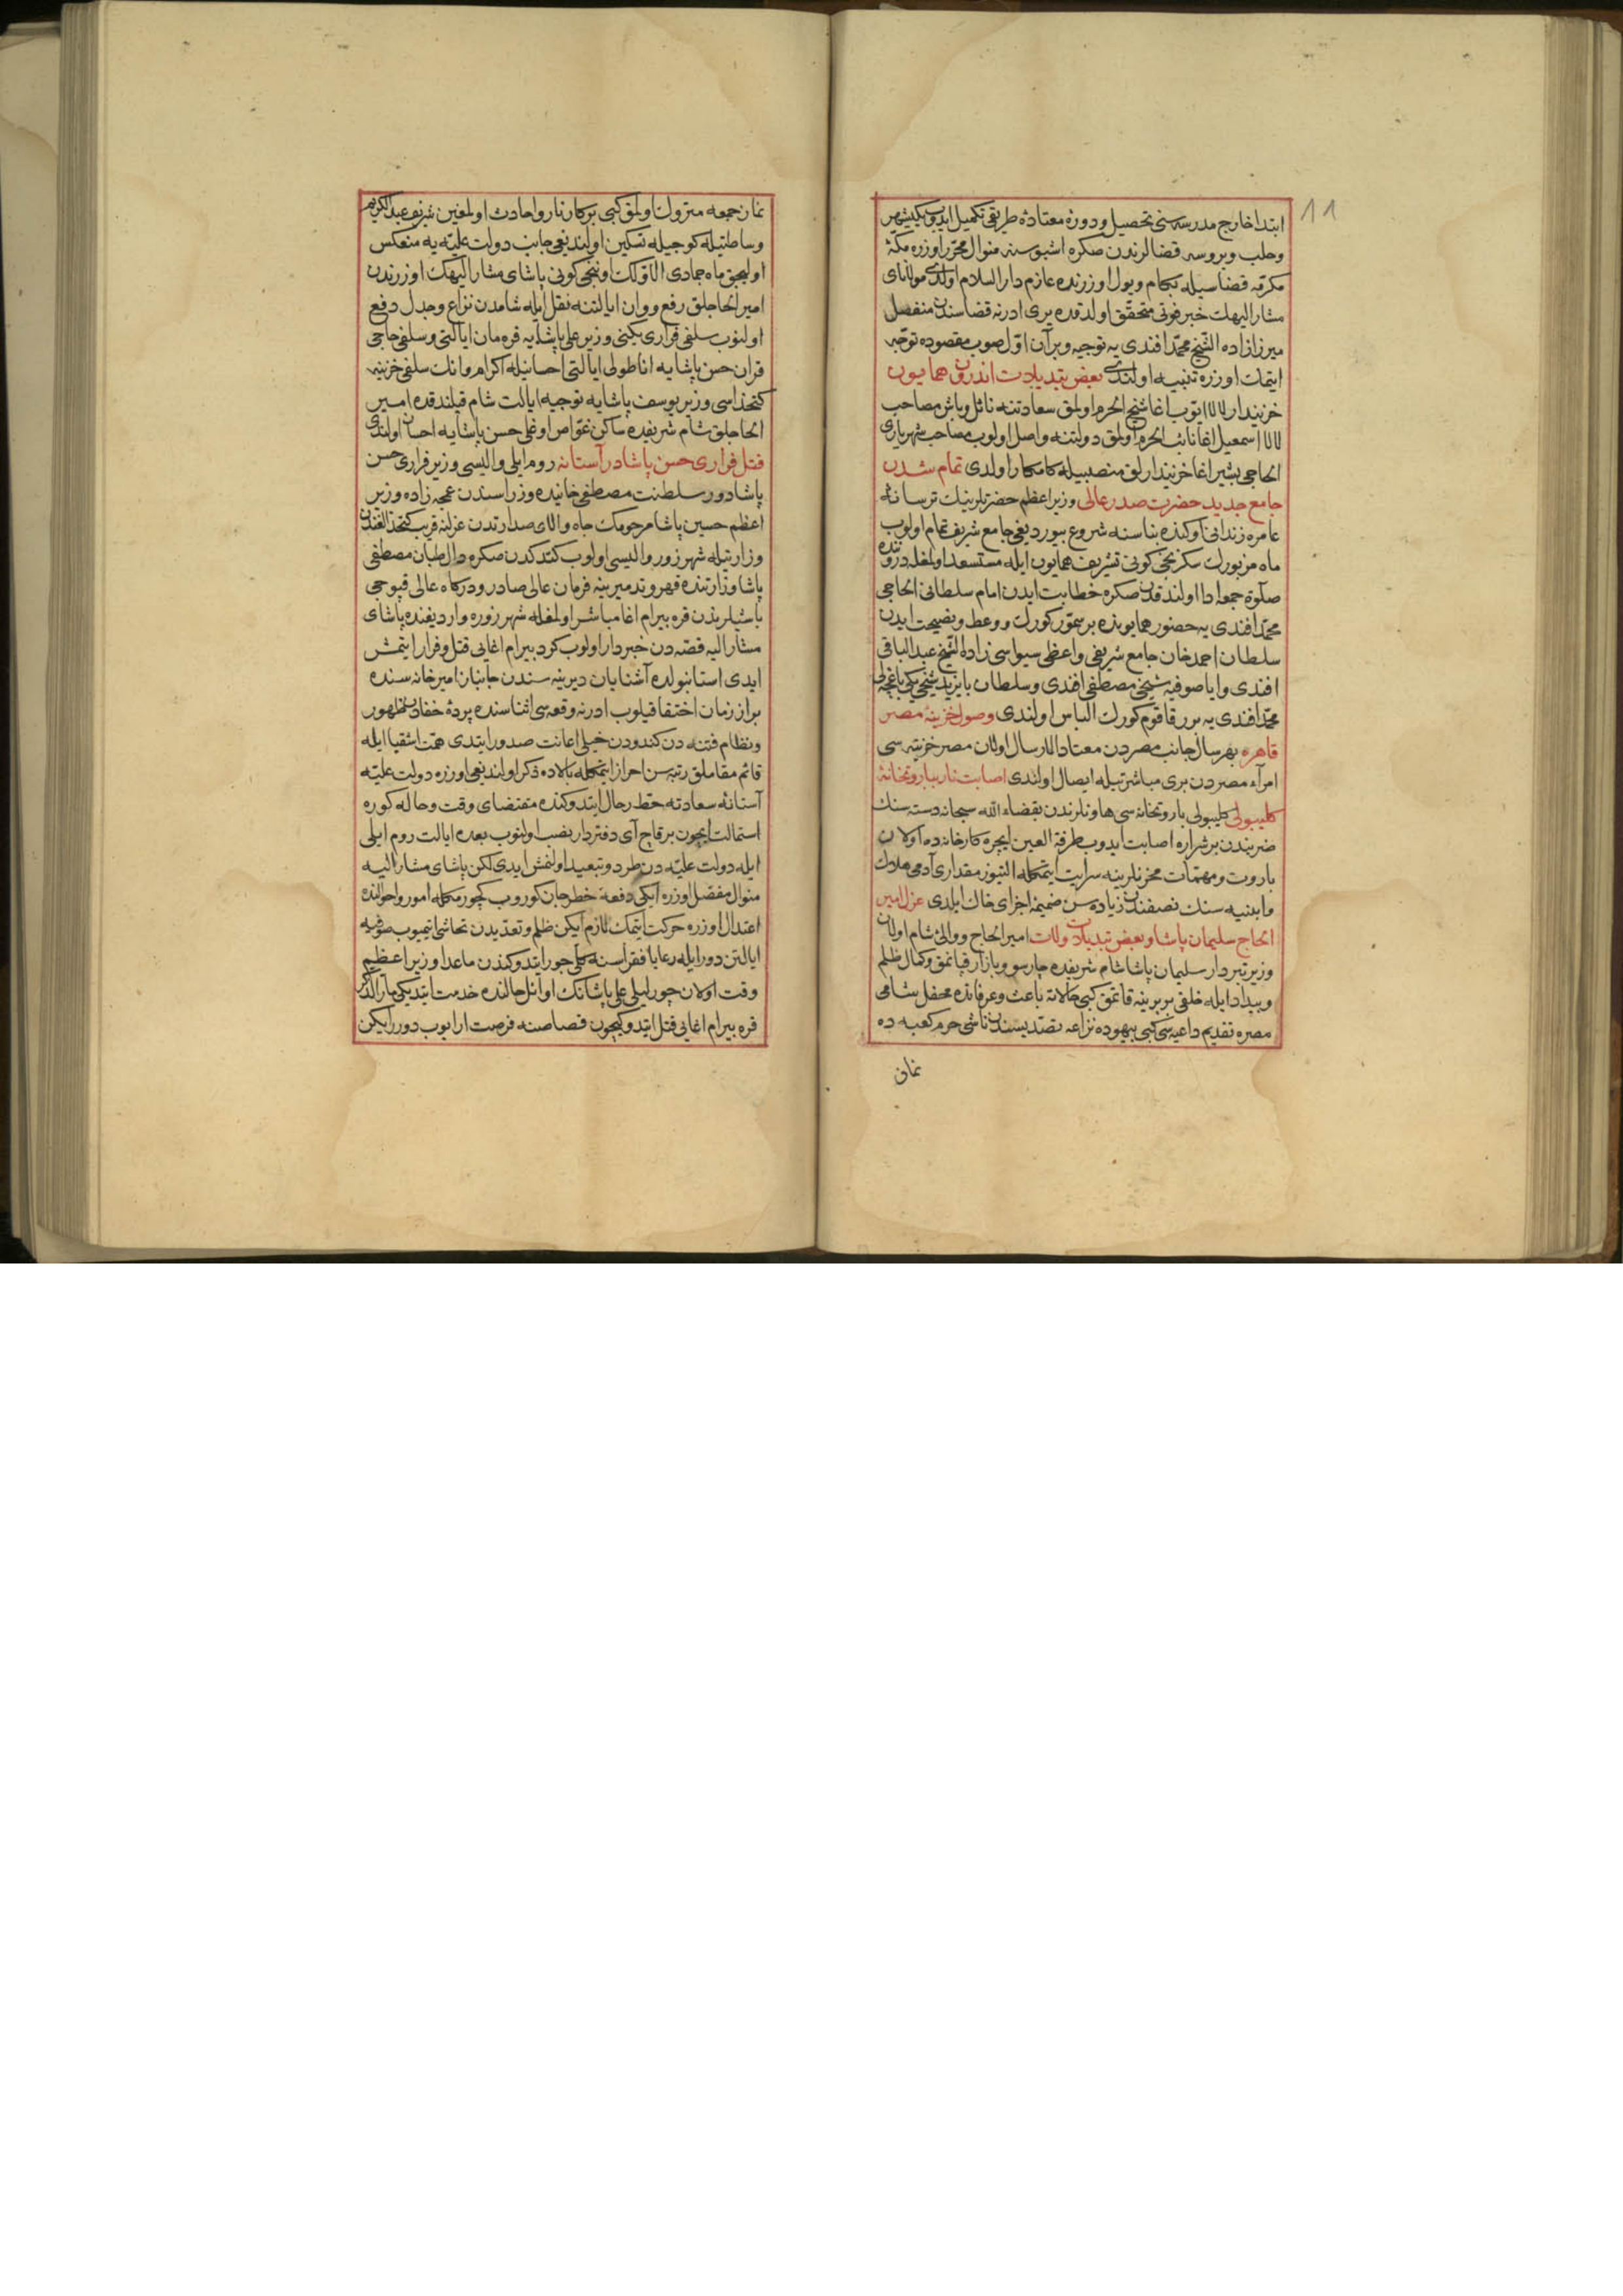 ١١
ابتدا خارج مدرسه سنی تحصیل و دورهٔ معتاده طریقی تکمیل ایدوب یکیشهر
وحلب وبروسه قضالرندن صکره اشبو سنه منوال محرر اوزره مکهٔ
مکرمه قضاسیله بکام وبول اوزرنده عازم دارالسلام اولدی مولانای
مشار الیهك خبر فوتی متحقق اولدقده یری ادرنه قضاسندن منفصل
میرزا زاده الشیخ محمد افندی یه توجیه وبرآن اول صوب مقصوده توجه
ایتمك اوزره تنبیه اولندی بعض تبدیلات اندرون همایون
خزیندار لالا ایوب اغا شیخ الحرم اولمق سعادتنه نائل وباش مصاحب
لالا اسمعیل اغا نائب الحرم اولمق دولتنه واصل اولوب مصاحب شهریاری
الحاجی بشیر اغا خزیندارلق منصبیله کامکار اولدی تمام شدن
جامع جدید حضرت صدر عالی وزیر اعظم حضرتلرینك ترسانهٔ
عامره زندانی اوکنده بناسنه شروع بیوردیغی جامع شریف تمام اولوب
ماه مزبورك سکزنجی کونی تشریف همایون ایله مستسعد اولمغله درونده
صلوة جمعه ادا اولندقدن صکره خطابت ایدن امام سلطانی الحاجی
محمد افندی یه حضور همایونده برسمور کورك ووعظ ونصیحت ایدن
سلطان احمد خان جامع شریفی واعظی سیواسی زاده الشیخ عبد الباقی
افندی وایاصوفیه شیخی مصطفی افندی وسلطان بایزید شیخی یکی باغچه لی
محمد افندی یه برر قاقوم کورك الباس اولندی وصول خزینهٔ مصر
قاهره بهر سال جانب مصردن معتاد الارسال اولان مصر خزینه سی
امرآء مصردن بری مباشرتیله ایصال اولندی اصابت نار بباروتخانهٔ
کلیبولی کلیبولی باروتخانه سی هاونلرندن بقضاء الله سبحانه دسته سنك
ضربندن برشراره اصابت ایدوب طرفة العین ایچره کارخانه ده اولان
باروت ومهمات مخزنلرینه سرایت ایتمکله التیوز مقداری آدمی هلاك
وابنیه سنك نصفندن زیاده سن ضمیمهٔ اجزای خاك ایلدی عزل امیر
الحاج سلیمان پاشا وبعض تبدیلات ولات امیر الحاج ووالئ شام اولان
وزیر تبردار سلیمان پاشا شام شریفده چارسو وبازار قپاتمق وکمال ظلم
وبیداد ایله خلقی بربرینه قاتمق کبی حالاته باعث وعرفاتده محفل شامی
مصره تقدیم داعیه سی کبی بیهوده نزاعه تصدیسندن ناشی حرم کعبه ده
نماز
نماز جمعه متروك اولمق کبی برکار ناروا حادث اولمغین شریف عبد الکریم
وساطتیله کوجیله تسکین اولندیغی جانب دولت علیه یه منعکس
اولیجق ماه جمادی الاولك اوننجی کونی پاشای مشار الیهك اوزرندن
امیر الحاجلق رفع ووان ایالتنه نقل ایله شامدن نزاع وجدل دفع
اولنوب سلفی قراری یکنی وزیر علی پاشایه قره مان ایالتی وسلفی حاجی
قران حسن پاشایه اناطولی ایالتی احسانیله اکرام وانك سلفی خزینه
کتخداسی وزیر یوسف پاشایه توجیه ایالت شام قیلندقده امیر
الحاجلق شام شریفده ساکن غواص اوغلی حسن پاشایه احسان اولندی
قتل فراری حسن پاشا در آستانه روم ایلی والیسی وزیر فراری حسن
پاشا دور سلطنت مصطفی خانیده وزراسندن عمجه زاده وزیر
اعظم حسین پاشا مرحومك جاه والای صدارتدن عزلنه قریب کتخدالغندن
وزارتیله شهرزور والیسی اولوب کتدکدن صکره دال طبان مصطفی
پاشا وزارتنده قهر وتدمیرینه فرمان عالی صادر ودرکاه عالی قپوجی
باشیلرندن قره بیرام اغا مباشر اولمغله شهرزوره واردیغنده پاشای
مشار الیه قصه دن خبردار اولوب کرد بیرام اغایی قتل وفرار ایتمش
ایدی استانبولده آشنایان دیرینه سندن جانباز امیر خانه سنده
براز زمان اختفا قیلوب ادرنه وقعه سی اثناسنده پردهٔ خفادن ظهور
ونظام فتنه دن کندودن خیلی اعانت صدور ایتدی همت اشقیا ایله
قائم مقاملق رتبه سن احراز ایتمکله بالاده ذکر اولندیغی اوزره دولت علیه
آستانهٔ سعادته حط رحال ایتدوکنده مقتضای وقت وحاله کوره
استمالت ایچون برقاچ آی دفتردار نصب اولنوب بعده ایالت روم ایلی
ایله دولت علیه دن طرد وتبعید اولنمش ایدی لکن پاشای مشار الیه
منوال مفصل اوزره ایکی دفعه خطر جان کوروب کچورمکله امور واحوالنده
اعتدال اوزره حرکت ایتمك لازم ایکن ظلم وتعدیدن تحاشی ایتمیوب صوفیه
ایالتن دور ایله رعایا فقراسنه کلی جور ایتدوکندن ماعدا وزیر اعظم
وقت اولان چورلیلی علی پاشانك اوائل حالنده خدمت ایتدیکی مار الذکر
قره بیرام اغایی قتل ایتدوکیچون قصاصنه فرصت ارایوب دورر ایکن